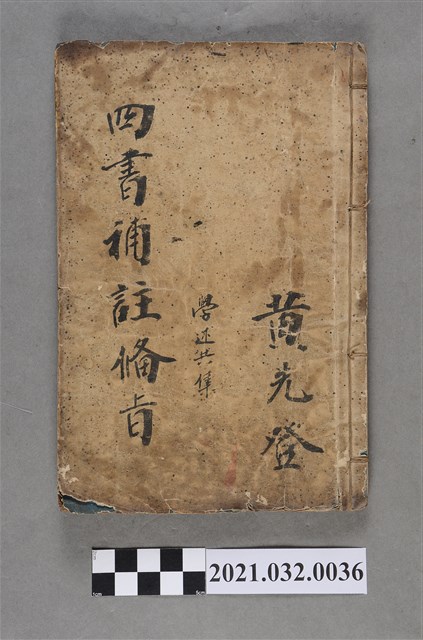 黃元登
學述共集
四書補註俻旨
2021.032.0036